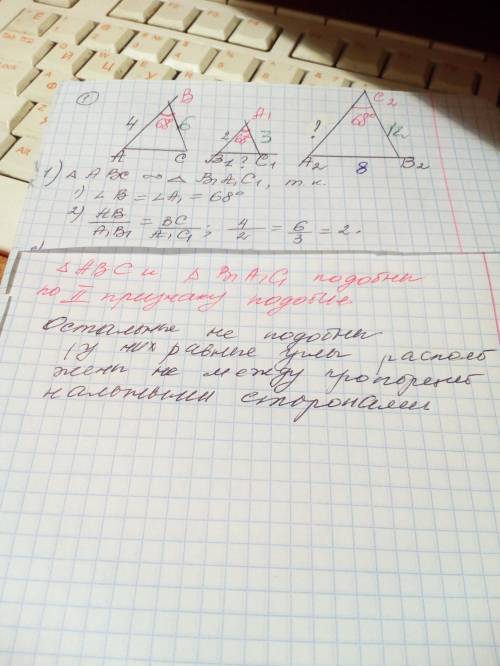 ①
B
68°
4
6
A
C
A₁
68°
2
3
B₁
?
C₁
C₂
68°
?
12
A₂
8
B₂
1) △ ABC ∞ △ B₁A₁C₁, т.к.
1) ∠B = ∠A₁ = 68°
2) AB/A₁B₁ = BC/A₁C₁; 4/2 = 6/3 = 2.
△ ABC и △ B₁A₁C₁ подобны
по II признаку подобие
Остальные не подобны
(у них равные углы располо
жены не между пропорцио
нальными сторонами